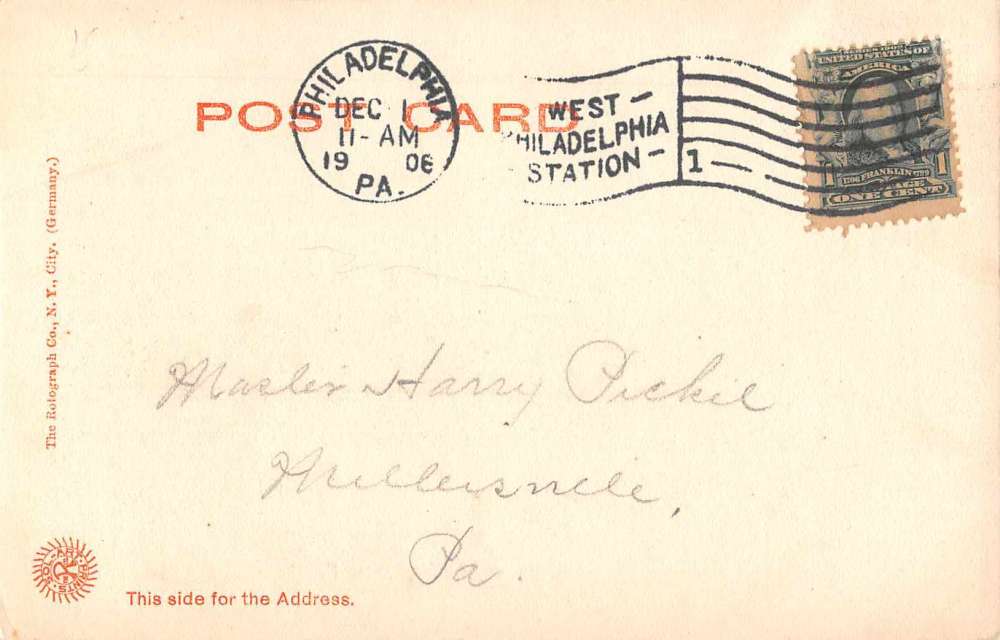 POST CARD
PHILADELPHIA
DEC 1
11-AM
19 06
PA.
WEST —
PHILADELPHIA
STATION —
1 —
SERIES 1902
UNITED STATES OF
AMERICA
1706 FRANKLIN 1790
POSTAGE
1 ONE CENT 1
The Rotograph Co., N. Y., City. (Germany.)
Master Harry Pickel
Millersville,
Pa.
SOL-ART PRINTS
This side for the Address.